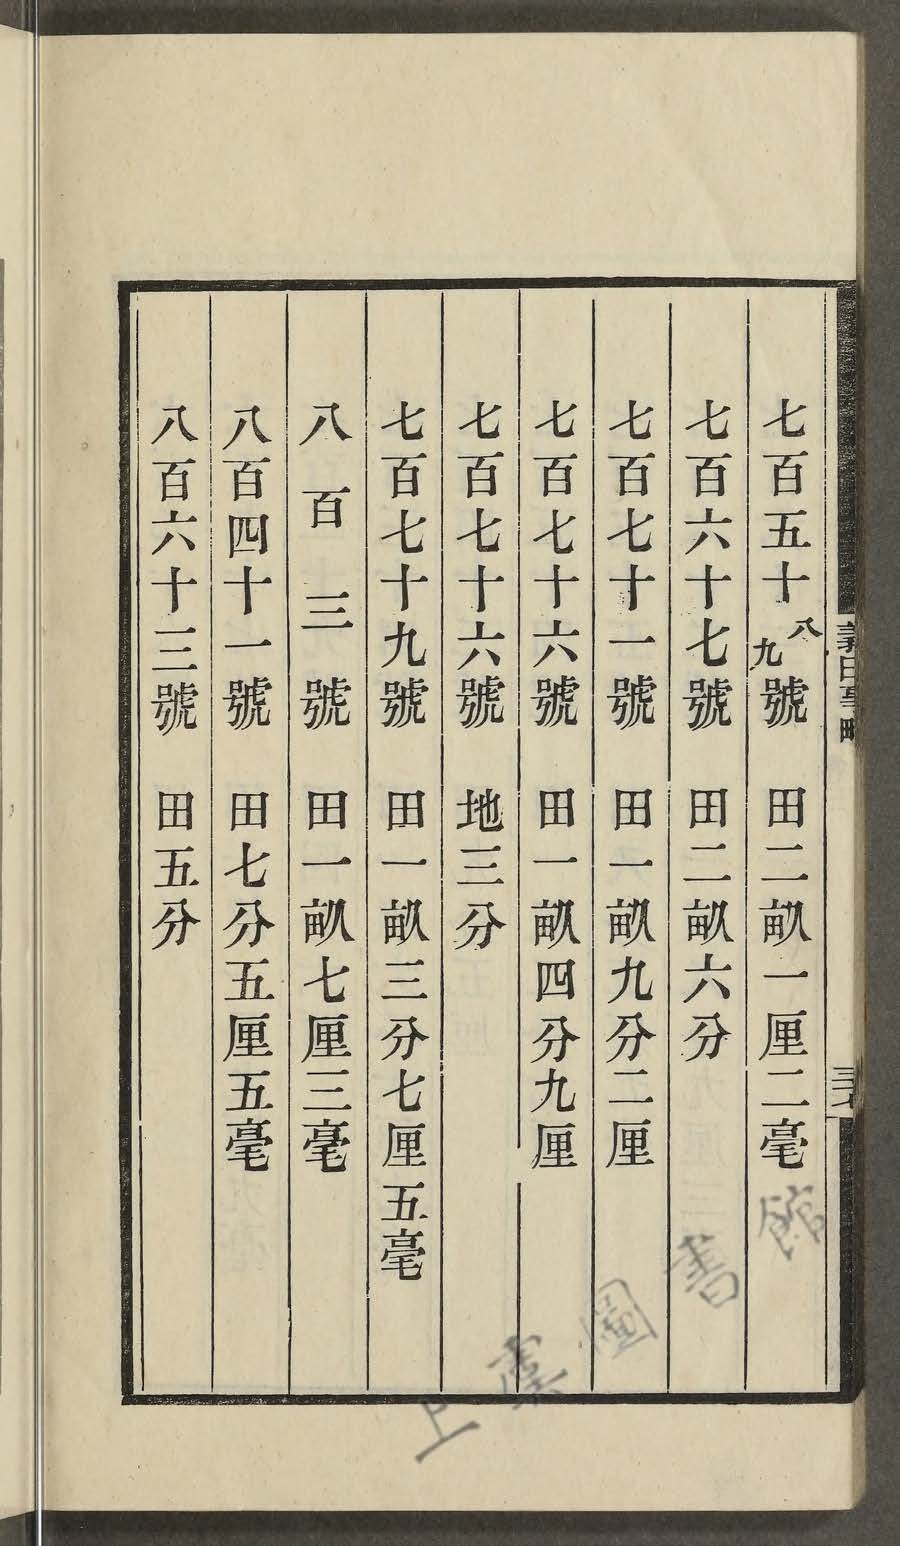 七百五十八九號　田二畝一厘二毫
七百六十七號　田二畝六分
七百七十一號　田一畝九分二厘
七百七十六號　田一畝四分九厘
七百七十六號　地三分
七百七十九號　田一畝三分七厘五毫
八百三號　田一畝七厘三毫
八百四十一號　田七分五厘五毫
八百六十三號　田五分
上虞圖書館